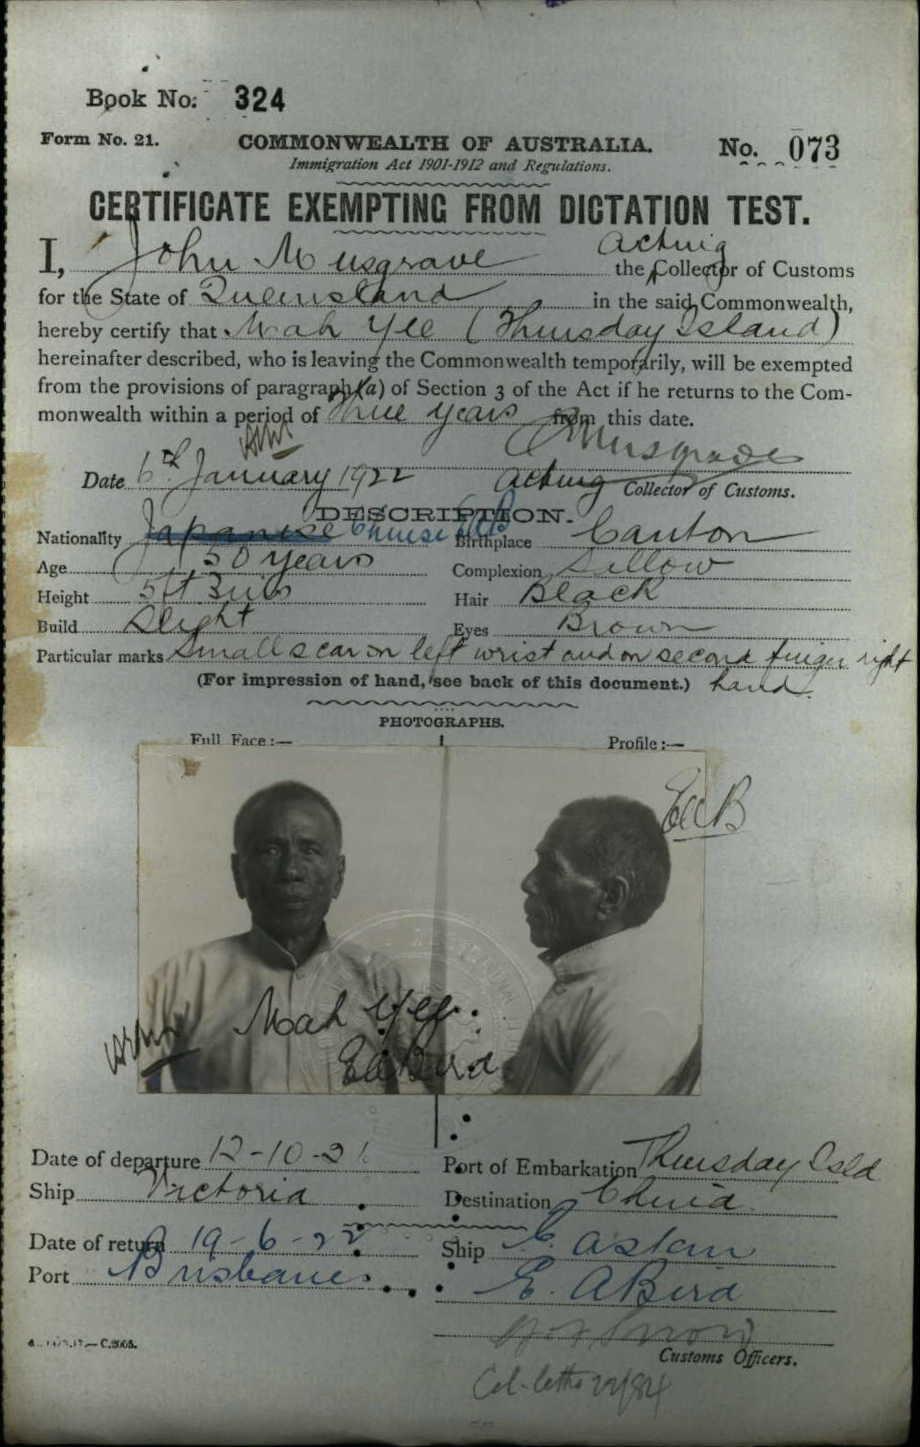 Book No: 324
Form No. 21. COMMONWEALTH OF AUSTRALIA. No. 073
Immigration Act 1901-1912 and Regulations.
CERTIFICATE EXEMPTING FROM DICTATION TEST.
I, John Musgrave Acting the Collector of Customs
for the State of Queensland in the said Commonwealth,
hereby certify that Mah Yee (Thursday Island)
hereinafter described, who is leaving the Commonwealth temporarily, will be exempted
from the provisions of paragraph (a) of Section 3 of the Act if he returns to the Com-
monwealth within a period of three years from this date.
Musgrave
Date 6th January 1922 Acting Collector of Customs.
DESCRIPTION.
Nationality Japanese Chinese EAB Birthplace Canton
Age 50 years Complexion Sallow
Height 5ft 3ins Hair Black
Build Slight Eyes Brown
Particular marks Small scar on left wrist and on second finger right
(For impression of hand, see back of this document.) hand.
PHOTOGRAPHS.
Full Face :— Profile :—
EAB
Mah Yee
EABird
Date of departure 12-10-21 Port of Embarkation Thursday Isld
Ship Victoria Destination China
Date of return 19-6-22 Ship Eastern
Port Brisbane E. A Bird
Customs Officers.